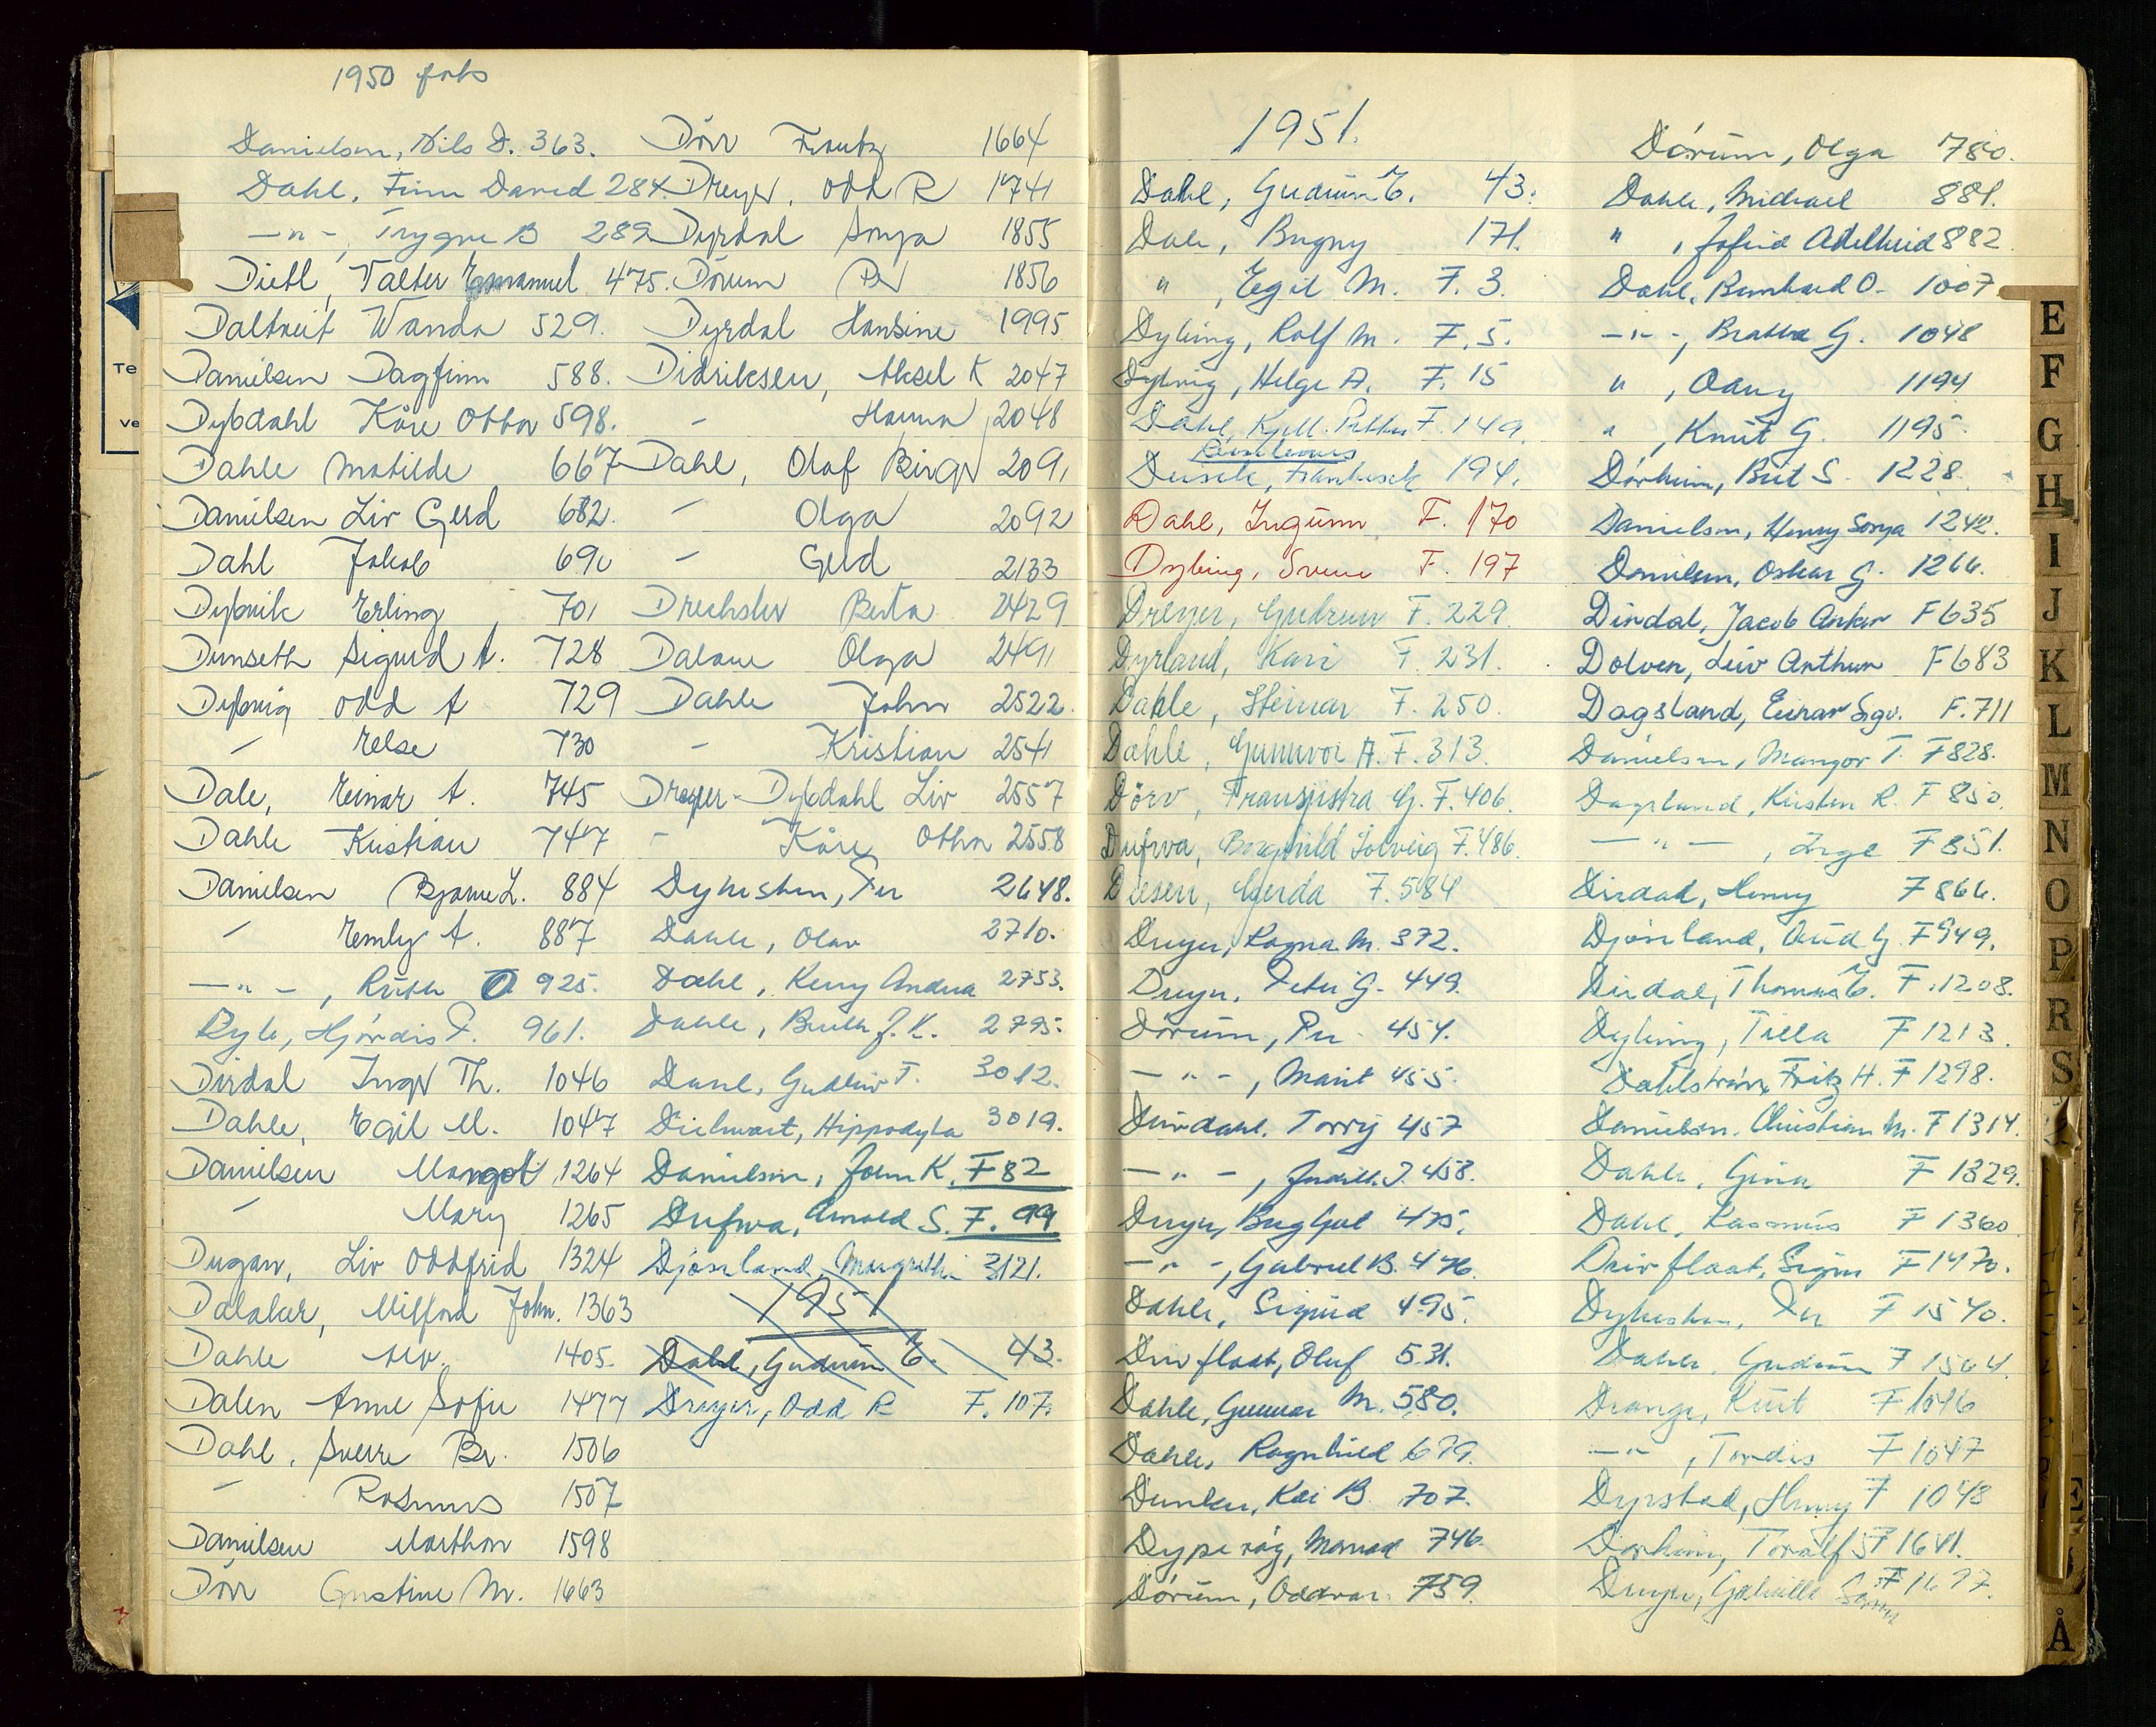 1950 forts
Danielsen, Nils D. 363.
Dahl, Finn David 284.
—"—, Trygve B 289
Dietl, Valter Emanuel 475.
Daltveit Wanda 529.
Danielsen Dagfinn 588.
Dybdahl Kåre Othar 598.
Dahle Matilde 667
Danielsen Liv Gerd 682.
Dahl Jakob 690
Dybvik Erling 701
Dunseth Sigurd A. 728
Dybvig Odd A 729
" Else 730
Dale, Einar A. 745
Dahle Kristian 747
Danielsen Bjarne L. 884
" Emly A. 887
—"—, Ruth O 925.
Dyle, Hjördis F. 961.
Dirdal Inger Th. 1046
Dahle, Egil M. 1047
Danielsen Margot 1264
" Mary 1265
Dugan, Liv Oddfrid 1324
Dalaker, Milford John. 1363
Dahle Alv. 1405.
Dalen Anne Sofie 1477
Dahl, Sverre Br. 1506
" Rasmus 1507
Danielsen Marthon 1598
Dörr Gustine M. 1663
Dörr Frantz 1664
Dreyer, Odd R 1741
Dyrdal Sonja 1855
Dörum Per 1856
Dyrdal Hansine 1995
Didriksen, Aksel K 2047
" Hanna 2048
Dahl, Olaf Birger 2091
" Olga 2092
" Gerd 2133
Drechsler Berta 2429
Dalane Olga 2491
Dahle John 2522.
" Kristian 2541
Dreyer-Dybdahl Liv 2557
" Kåre Othar 2558
Dykesten, Per 2648.
Dahle, Olav 2710.
Dahl, Kerry Andrea 2753.
Dahle, Berth J. K. 2795.
Dahl, Gudleiv T. 3012.
Dielwart, Hippodyta 3019.
Danielsen, John K. F 82
Dufwa, Arnold S. F. 99
Djösland, Margrethe 3121.
1951
Dahl, Gudrun E. 43.
Dreyer, Odd R F. 107.
1951.
Dahl, Gudrun E. 43.
Dale, Bugny 171.
" , Egil M. F. 3.
Dybing, Rolf M. F. 5.
Dybvig, Helge A. F. 15
Dahl, Kjell Petter F. 149.
Deisek, Frantisek 194.
Dahl, Ingunn F. 170
Dybing, Svein F. 197
Dreyer, Gudrun F. 229.
Dyrland, Kari F. 231.
Dahle, Steinar F. 250.
Dahle, Gunnvor A. F. 313.
Dörv, Fransistra G. F. 406.
Dufwa, Borghild Solveig F. 486.
Diesen, Gerda F. 584
Dreyer, Ragna M. 372.
Dreyer, Peter G. 449.
Dörum, Per 454.
—"—, Marit 455.
Durdahl, Torry 457
—"—, Judith J. 458.
Dreyer, Bugljot 475.
—"—, Gabriel B. 476.
Dahle, Sigurd 495.
Drivflaat, Oluf 531.
Dahle, Gunnar M. 580.
Dahle, Ragnhild 679.
Dunker, Kai B. 707.
Dyperåg, Marrad 746.
Dörum, Oddvar 759.
Dörum, Olga 780.
Dahle, Michael 881.
" , Jofrid Adelheid 882
Dahl, Bernhard O. 1007
—"—, Brattva G. 1048
" , Oddny 1194
" , Knut G. 1195.
Dörheim, Brit S. 1228.
Danielsen, Henny Sonja 1242.
Danielsen, Oskar G. 1266.
Dirdal, Jacob Anker F 635
Dolven, Leiv Arthur F 683
Dagsland, Einar Sigv. F. 711
Danielsen, Mangor T. F 828.
Dagsland, Kirsten R. F 850.
—"—, Inge F 851.
Dirdal, Henny F 866.
Djösland, Aud G. F 949.
Dirdal, Thomas E. F. 1208.
Dybing, Tilla F 1213.
Dahlström, Fritz H. F 1298.
Danielsen, Christian M. F 1314.
Dahle, Gina F 1329.
Dahl, Rasmus F 1360
Drivflaat, Sigrun F 1470.
Dykesten, Per F 1540.
Dahle, Gudrun F 1564.
Drange, Knut F 1046
—"—, Tordis F 1047
Dyrstad, Henny F 1048
Dörheim, Toralf S F 1641.
Dreyer, Gabrielle F 1697.
E
F
G
H
I
J
K
L
M
N
O
P
R
S
Å